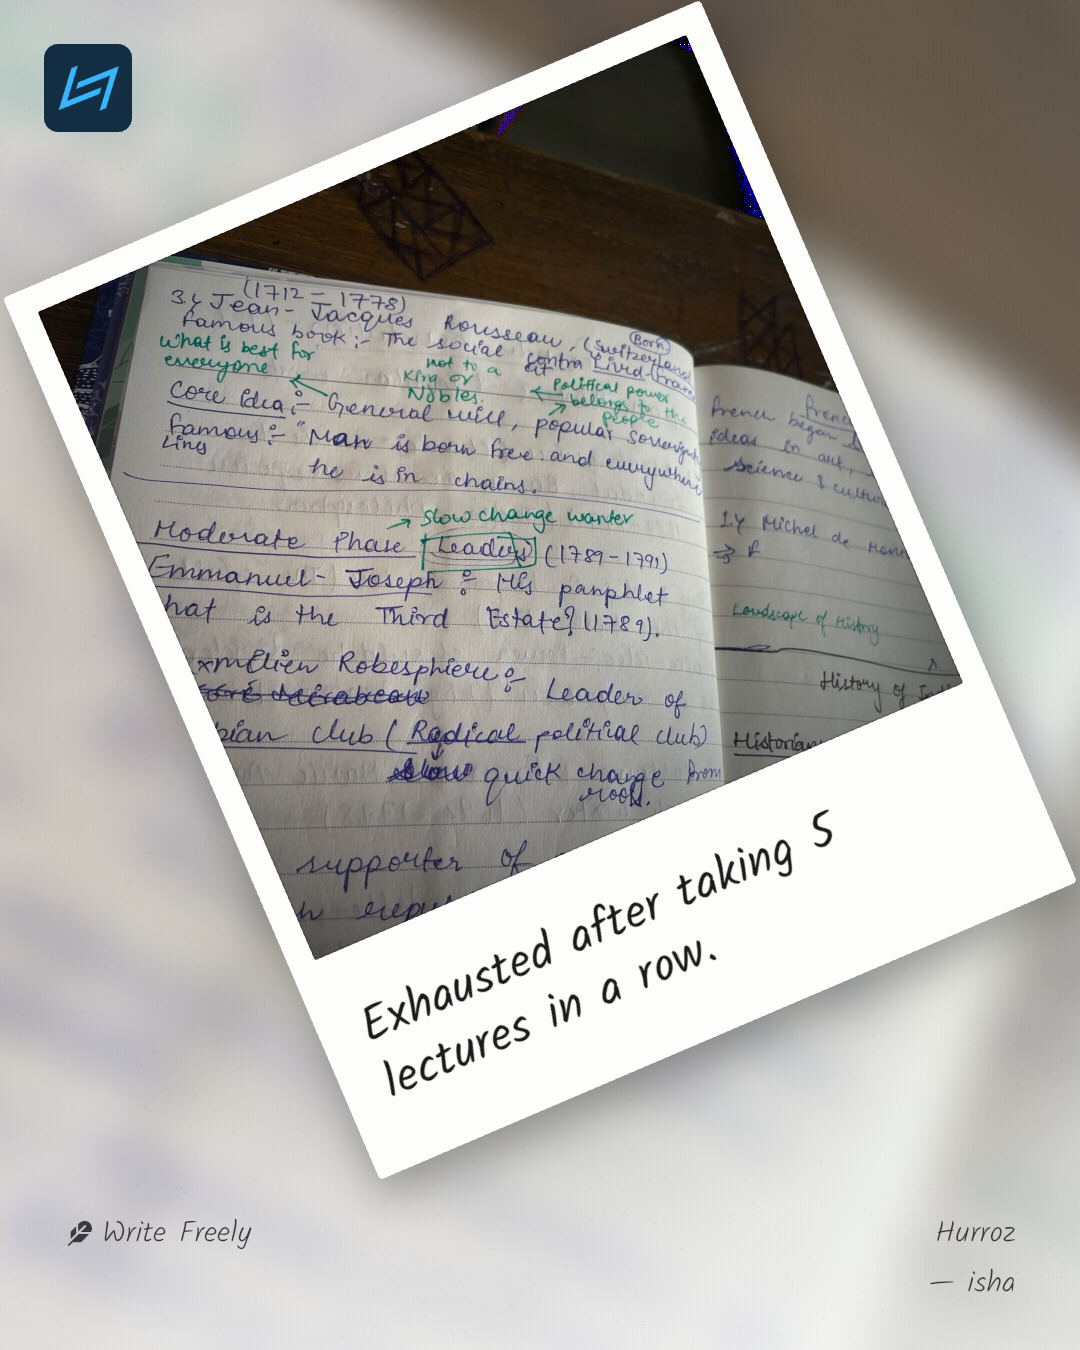 (1712 - 1778)
3.) Jean-Jacques Rousseau, (Switzerland Born
Lived-Fran
Famous book :- The social contra
what is best for everyone
not to a King or Nobles.
Political power belongs to the people
Core Idea :- General will, popular
Famous :- "Man is born free and everywhere
Lins
he is in chains.
→ Slow change wanter
Moderate Phase Leaders (1789-1791)
Emmanuel-Joseph :- His panphlet
hat is the Third Estate? (1789).
xmilien Robesphiere :- Leader of
bian club (Radical political club)
quick change from
root.
supporter of
frenc
french began
ideas in art,
science & cultu
1.) Michel de Mont
Landscape of History
History of
Historian
Exhausted after taking 5
lectures in a row.
Write Freely
Hurroz
— isha